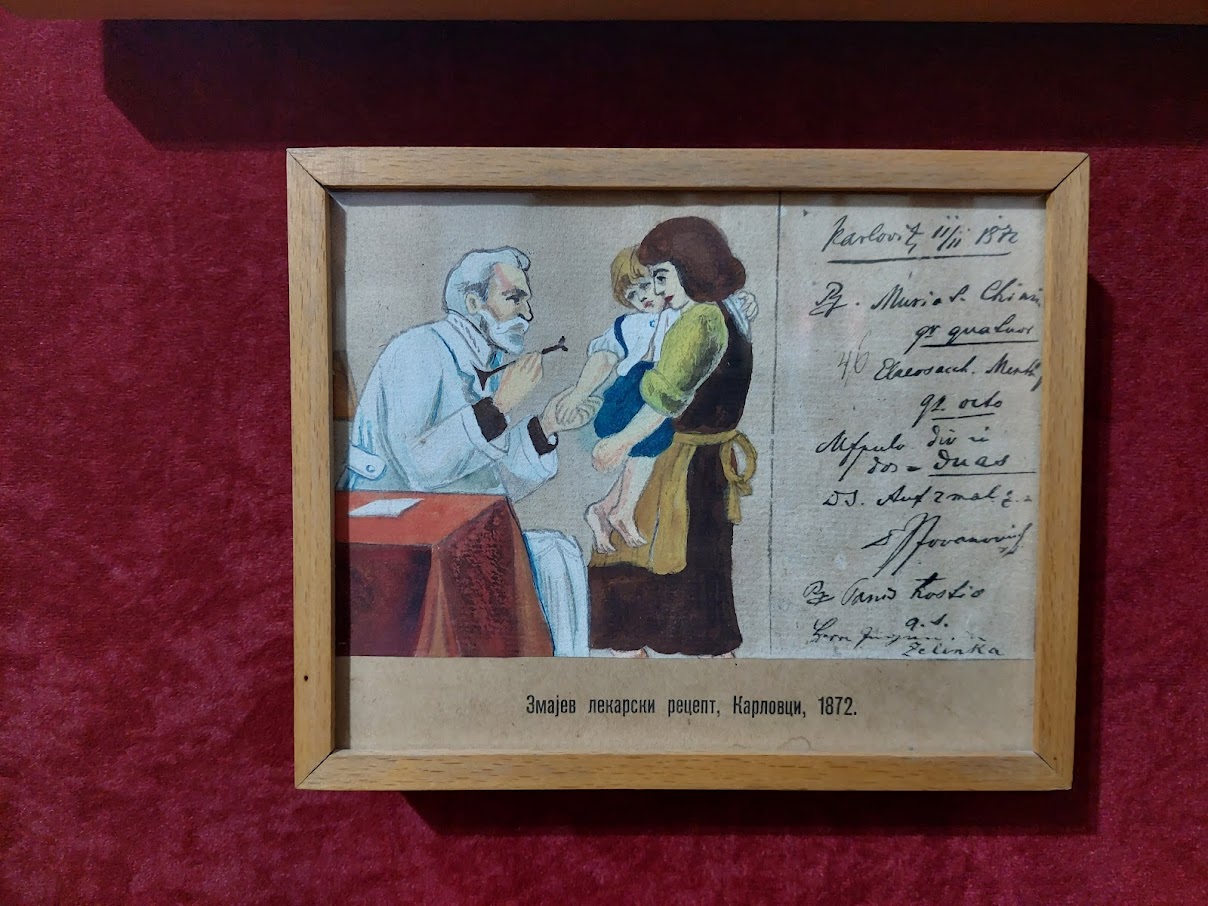 Karlovitz, 11/11 1872
Rp. Murias. Chinin
gr quatuor
46 Elaeosacch. Menth
gr. octo
div in
dos = duas
DS. Auf 2 mal z.
Jovanovich
Kostić
q. s.
Zelinka
Змајев лекарски рецепт, Карловци, 1872.